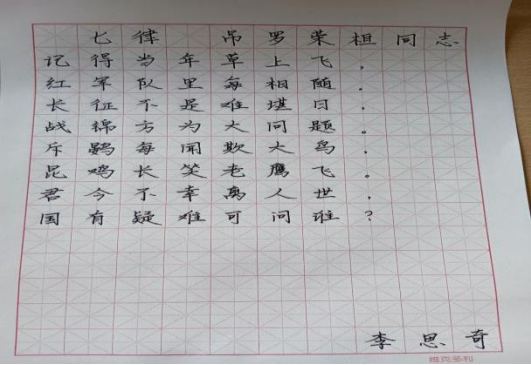 七律 吊罗荣桓同志
记得当年草上飞，
红军队里每相随。
长征不是难堪日，
战锦方为大问题。
斥鷃每闻欺大鸟，
昆鸡长笑老鹰飞。
君今不幸离人世，
国有疑难可问谁？
李思奇